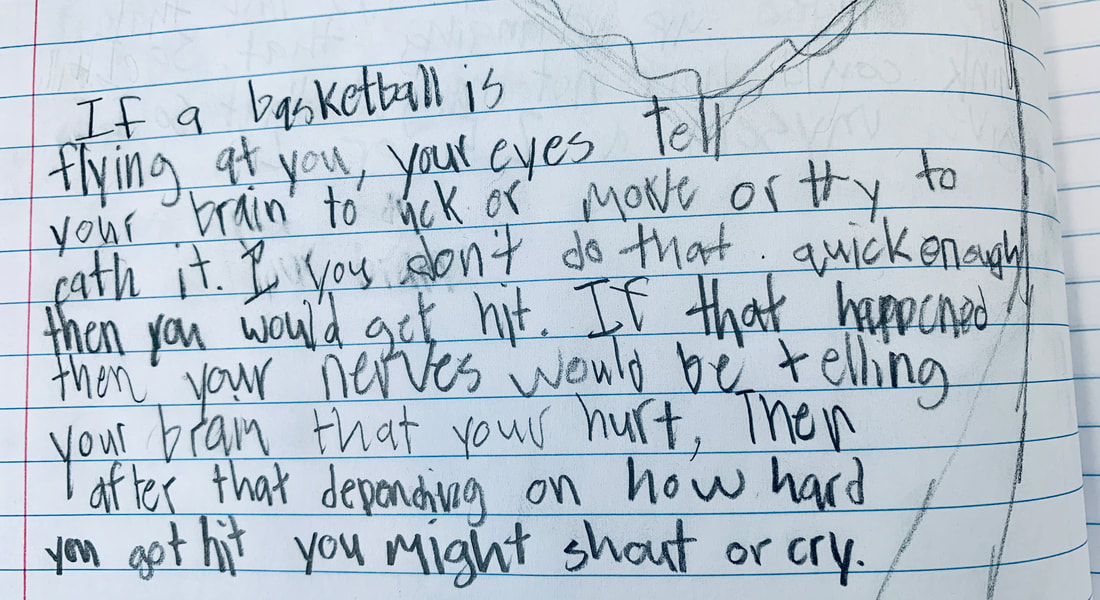 If a basketball is
flying at you, your eyes tell
your brain to or move or try to
cath it. If you don't do that. quick enough
then you would get hit. If that happened
then your nerves would be telling
your brain that your hurt, Then
after that depending on how hard
you got hit you might shout or cry.